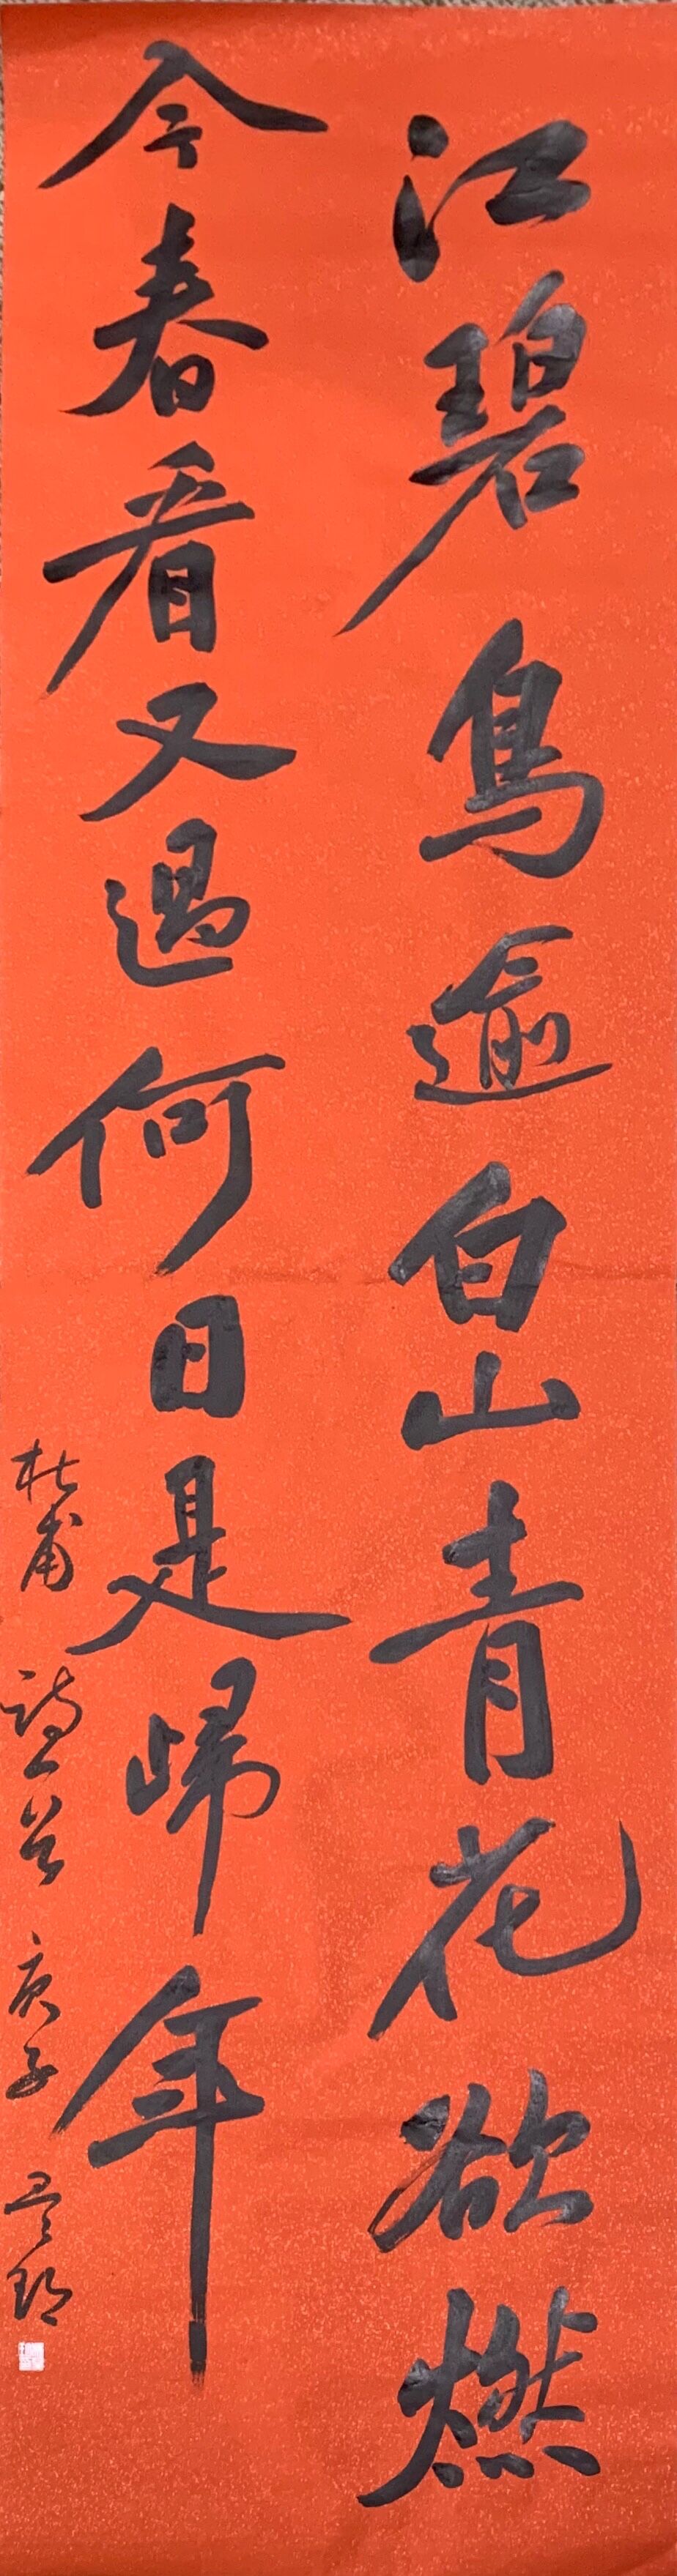 江碧鳥逾白山青花欲燃
今春看又過何日是歸年
杜甫 詩首 庚子